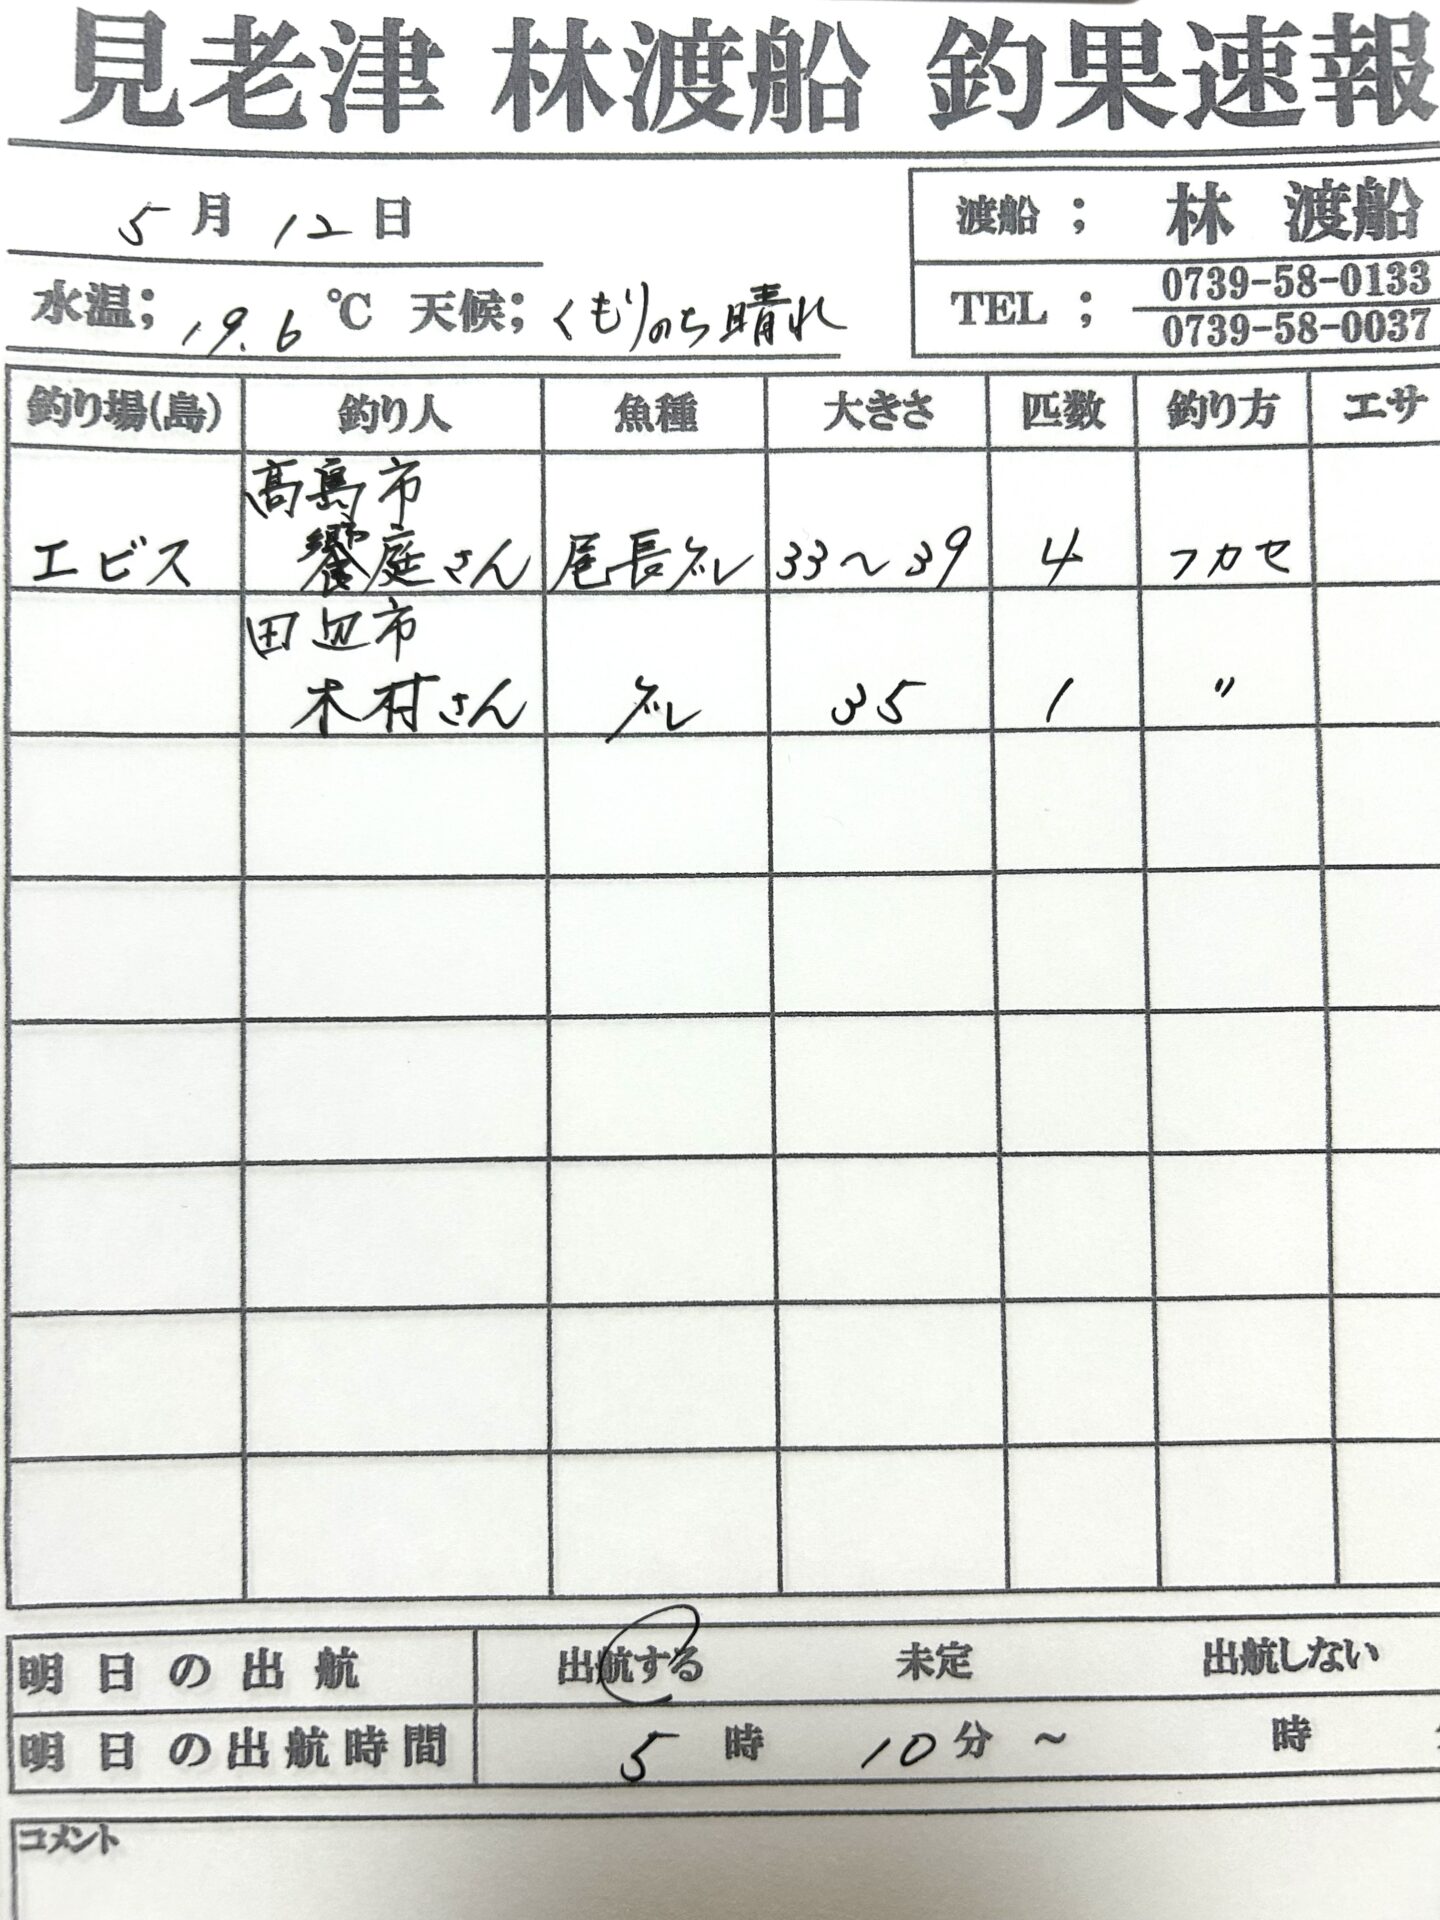 見老津 林渡船 釣果速報
5月12日
渡船； 林 渡船
TEL； 0739-58-0133
0739-58-0037
水温；19.6℃ 天候；くもりのち晴れ
釣り場(島) 釣り人 魚種 大きさ 匹数 釣り方 エサ
高島市
エビス 饗庭さん 尾長グレ 33～39 4 フカセ
田辺市
木村さん グレ 35 1 〃
明日の出航 出航する 未定 出航しない
明日の出航時間 5時10分～ 時
コメント